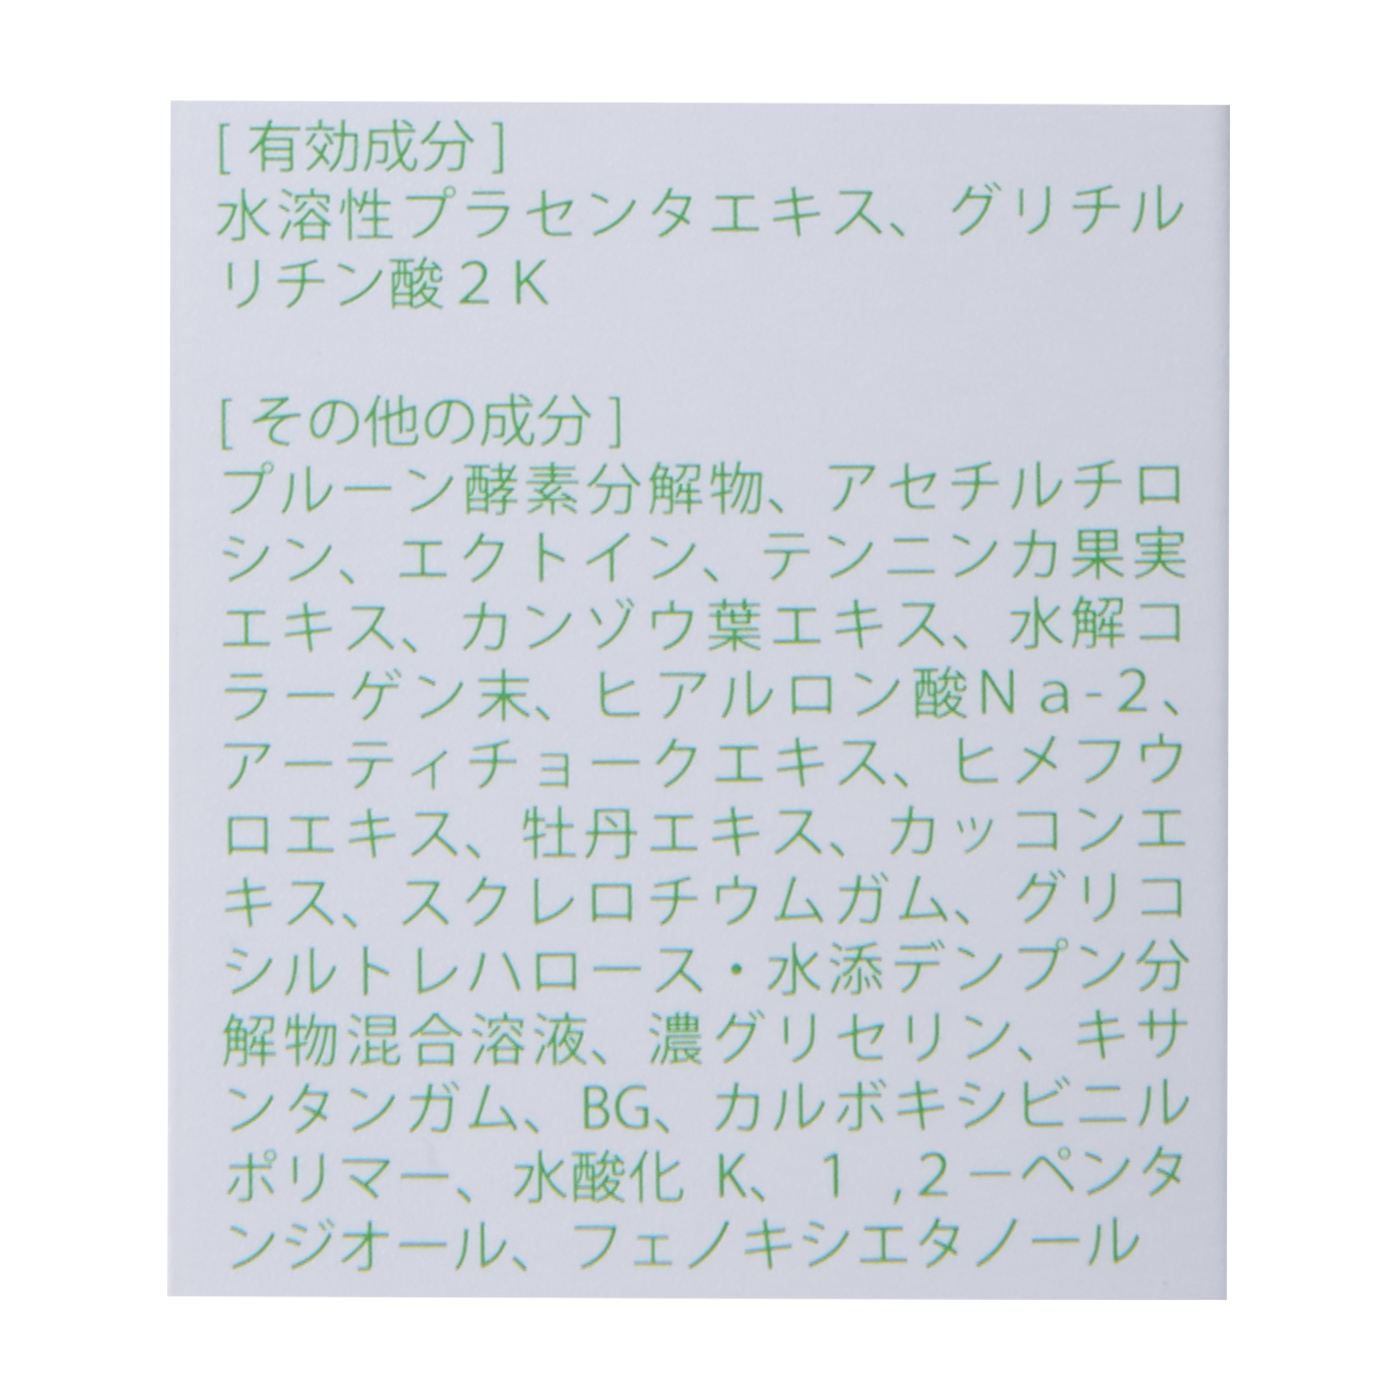 [ 有効成分 ]
水溶性プラセンタエキス、グリチル
リチン酸２K
[ その他の成分 ]
プルーン酵素分解物、アセチルチロ
シン、エクトイン、テンニンカ果実
エキス、カンゾウ葉エキス、水解コ
ラーゲン末、ヒアルロン酸Ｎａ-２、
アーティチョークエキス、ヒメフウ
ロエキス、牡丹エキス、カッコンエ
キス、スクレロチウムガム、グリコ
シルトレハロース・水添デンプン分
解物混合溶液、濃グリセリン、キサ
ンタンガム、BG、カルボキシビニル
ポリマー、水酸化 K、１ ,２－ペンタ
ンジオール、フェノキシエタノール